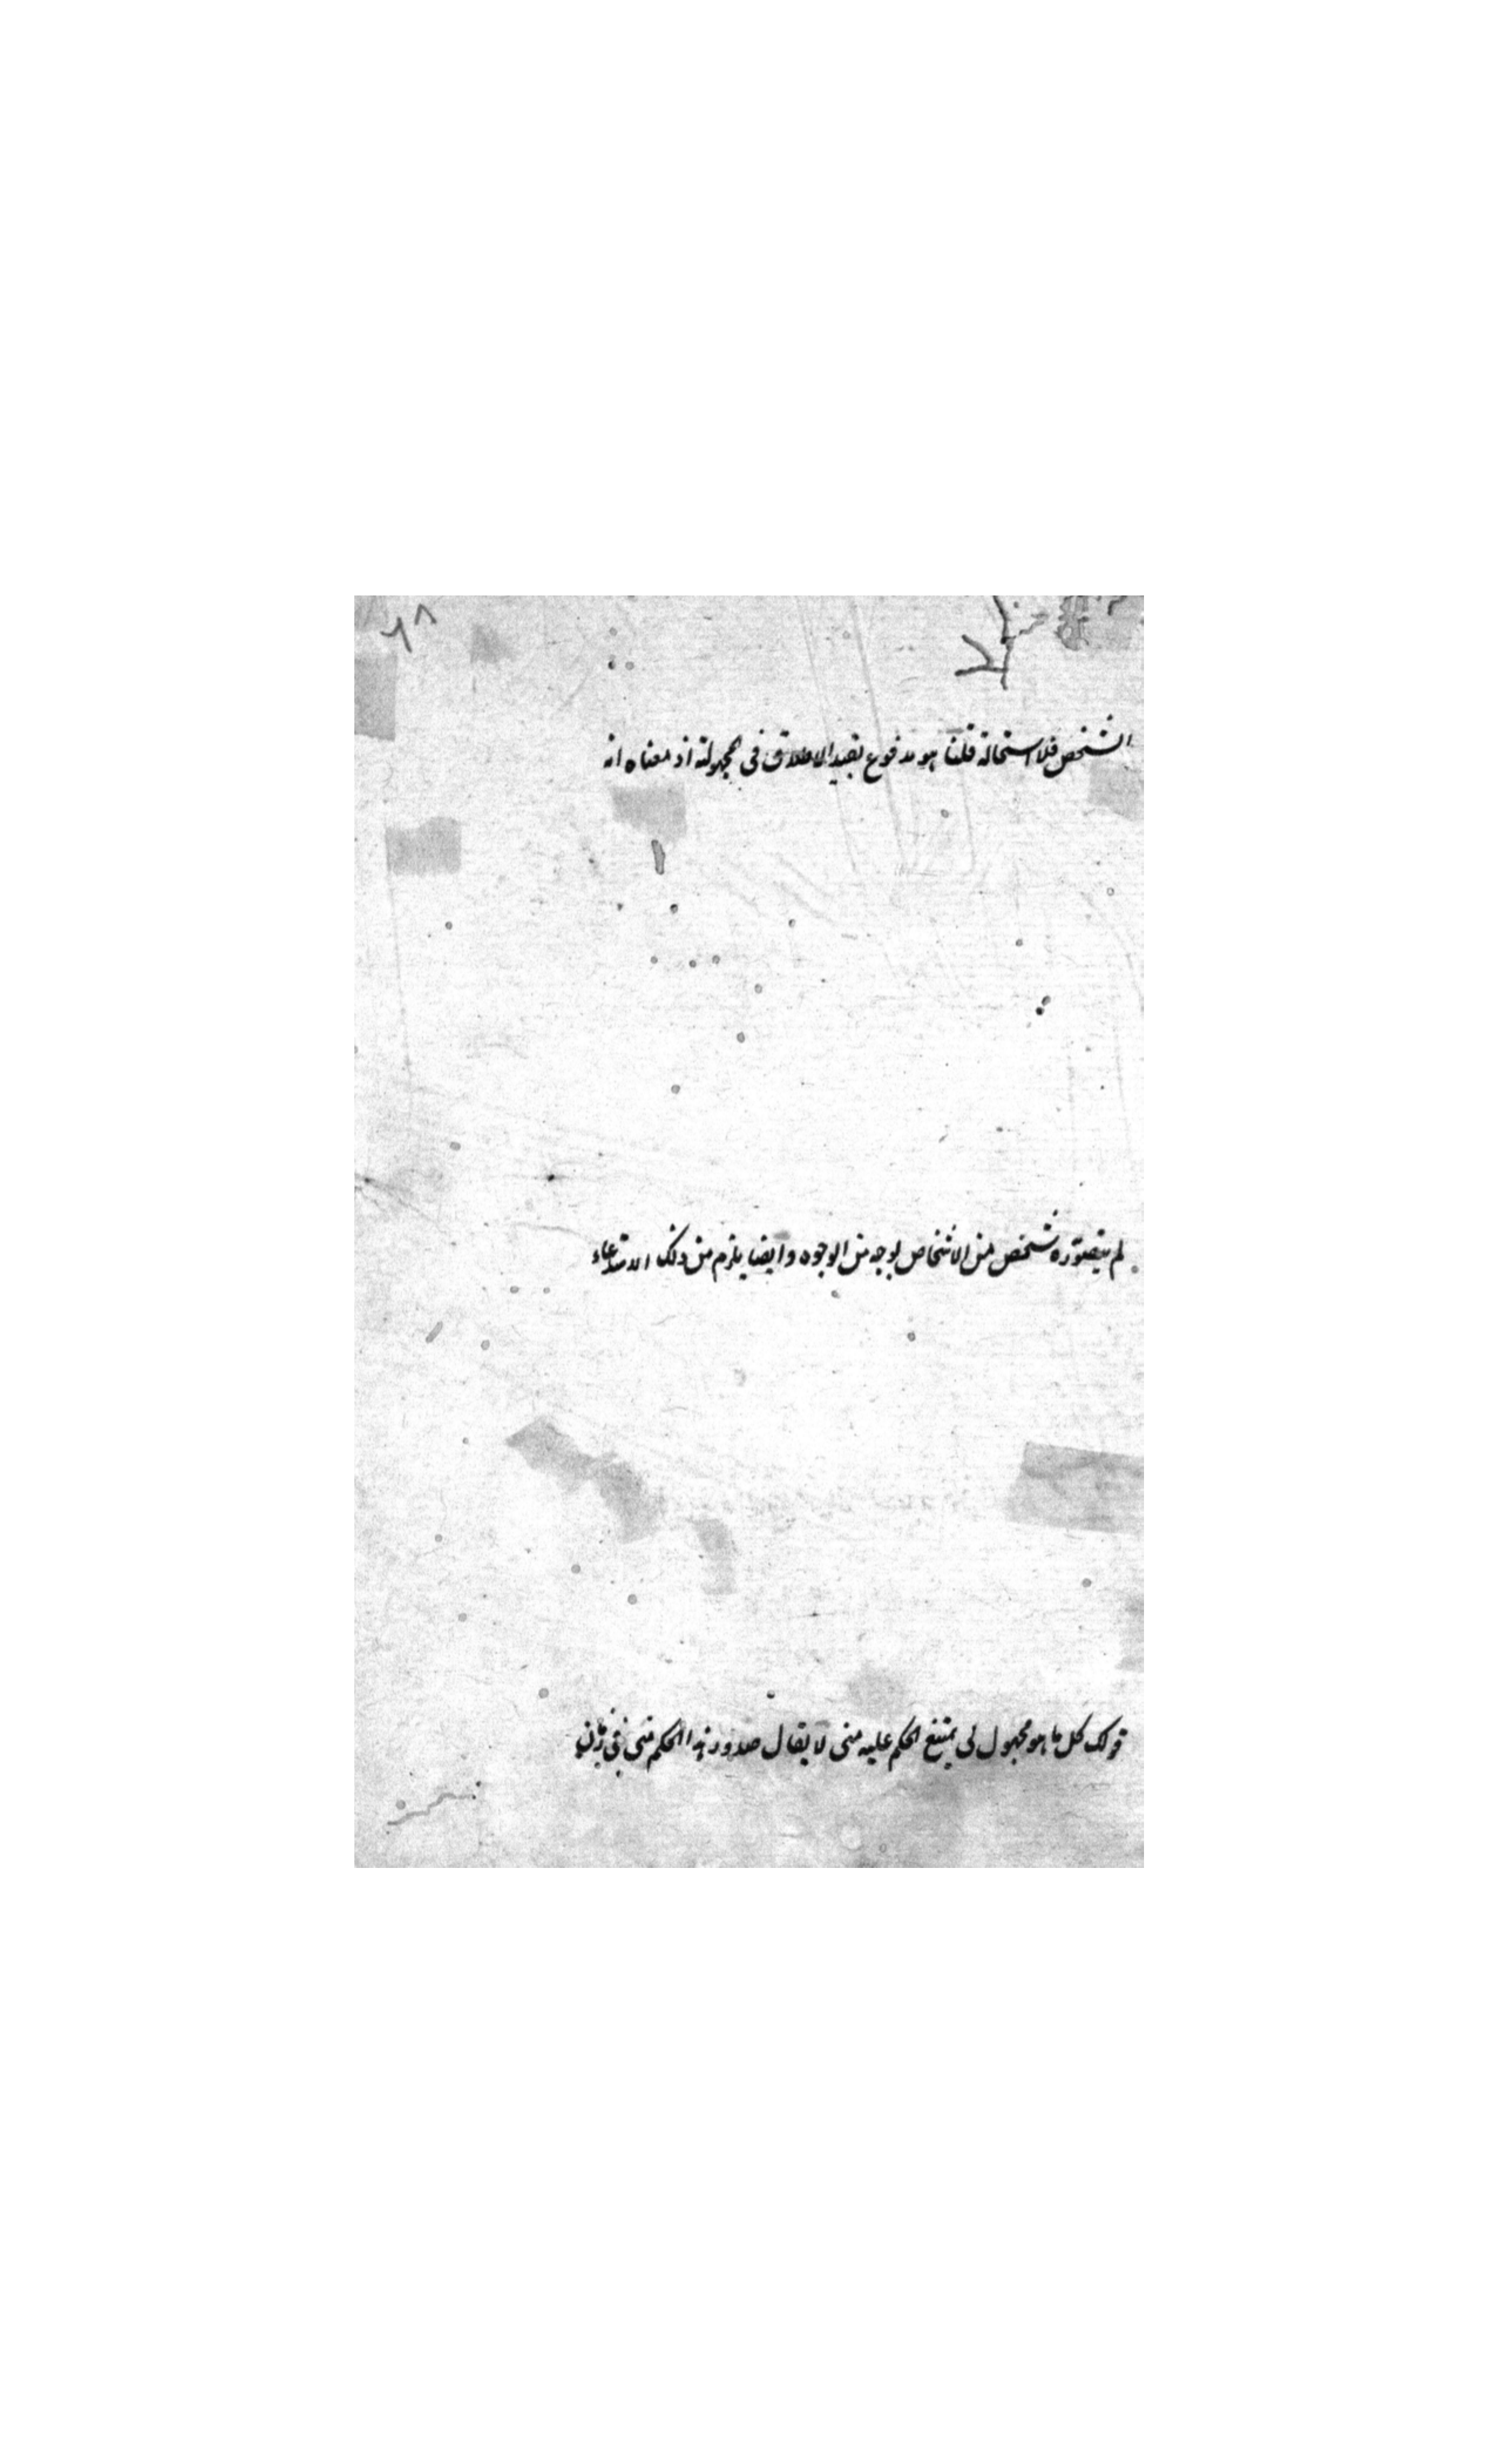 ٦٨
الشخص فلا استحالة قلنا هو مدفوع بقيد الاطلاق فى المجهولية اذ معناه انه
لم يتصوره شخص من الاشخاص بوجه من الوجوه وايضا يلزم من ذلك الامتناع
قولك كل ما هو مجهول لى يمتنع الحكم عليه منى لا يقال صدور هذا الحكم منى فى